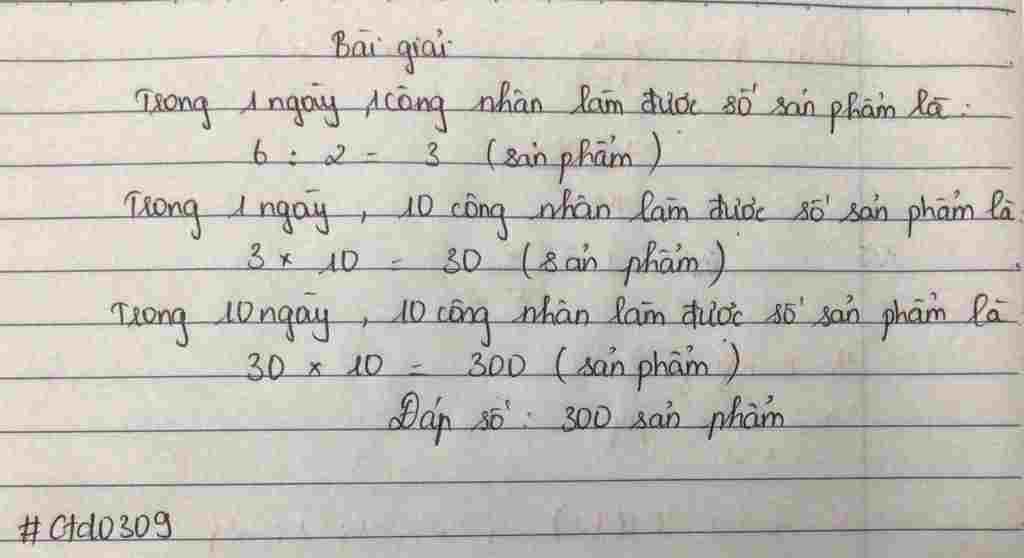 Bài giải
Trong 1 ngày, 1 công nhân làm được số sản phẩm là:
6 : 2 = 3 (sản phẩm)
Trong 1 ngày, 10 công nhân làm được số sản phẩm là:
3 × 10 = 30 (sản phẩm)
Trong 10 ngày, 10 công nhân làm được số sản phẩm là
30 × 10 = 300 (sản phẩm)
Đáp số: 300 sản phẩm
#Ctd0309